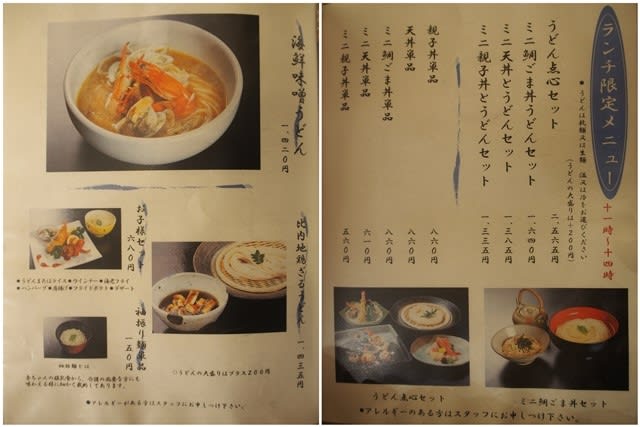 海鮮味噌うどん
一、四二〇円
お子様セット
六八〇円
●うどんまたはライス●ウインナー●海老フライ
●ハンバーグ●唐揚げ●フライドポテト●デザート
比内地鶏ざるうどん
一、四三五円
一五〇円
○うどんの大盛りはプラス200円
●アレルギーがある方はスタッフにお申しつけ下さい。
ランチ限定メニュー
十一時〜十四時
●うどんは乾麺又は生麺 温又は冷をお選びください
(うどんの大盛りは+200円)
うどん点心セット 二、五六五円
ミニ鯛ごま丼うどんセット 一、六四〇円
ミニ天丼とうどんセット 一、三八五円
ミニ親子丼とうどんセット 一、三三五円
親子丼単品 八六〇円
天丼単品 八六〇円
ミニ鯛ごま丼単品 八六〇円
ミニ天丼単品 六一〇円
ミニ親子丼単品 五六〇円
うどん点心セット
ミニ鯛ごま丼セット
●アレルギーのある方はスタッフにお申しつけ下さい。